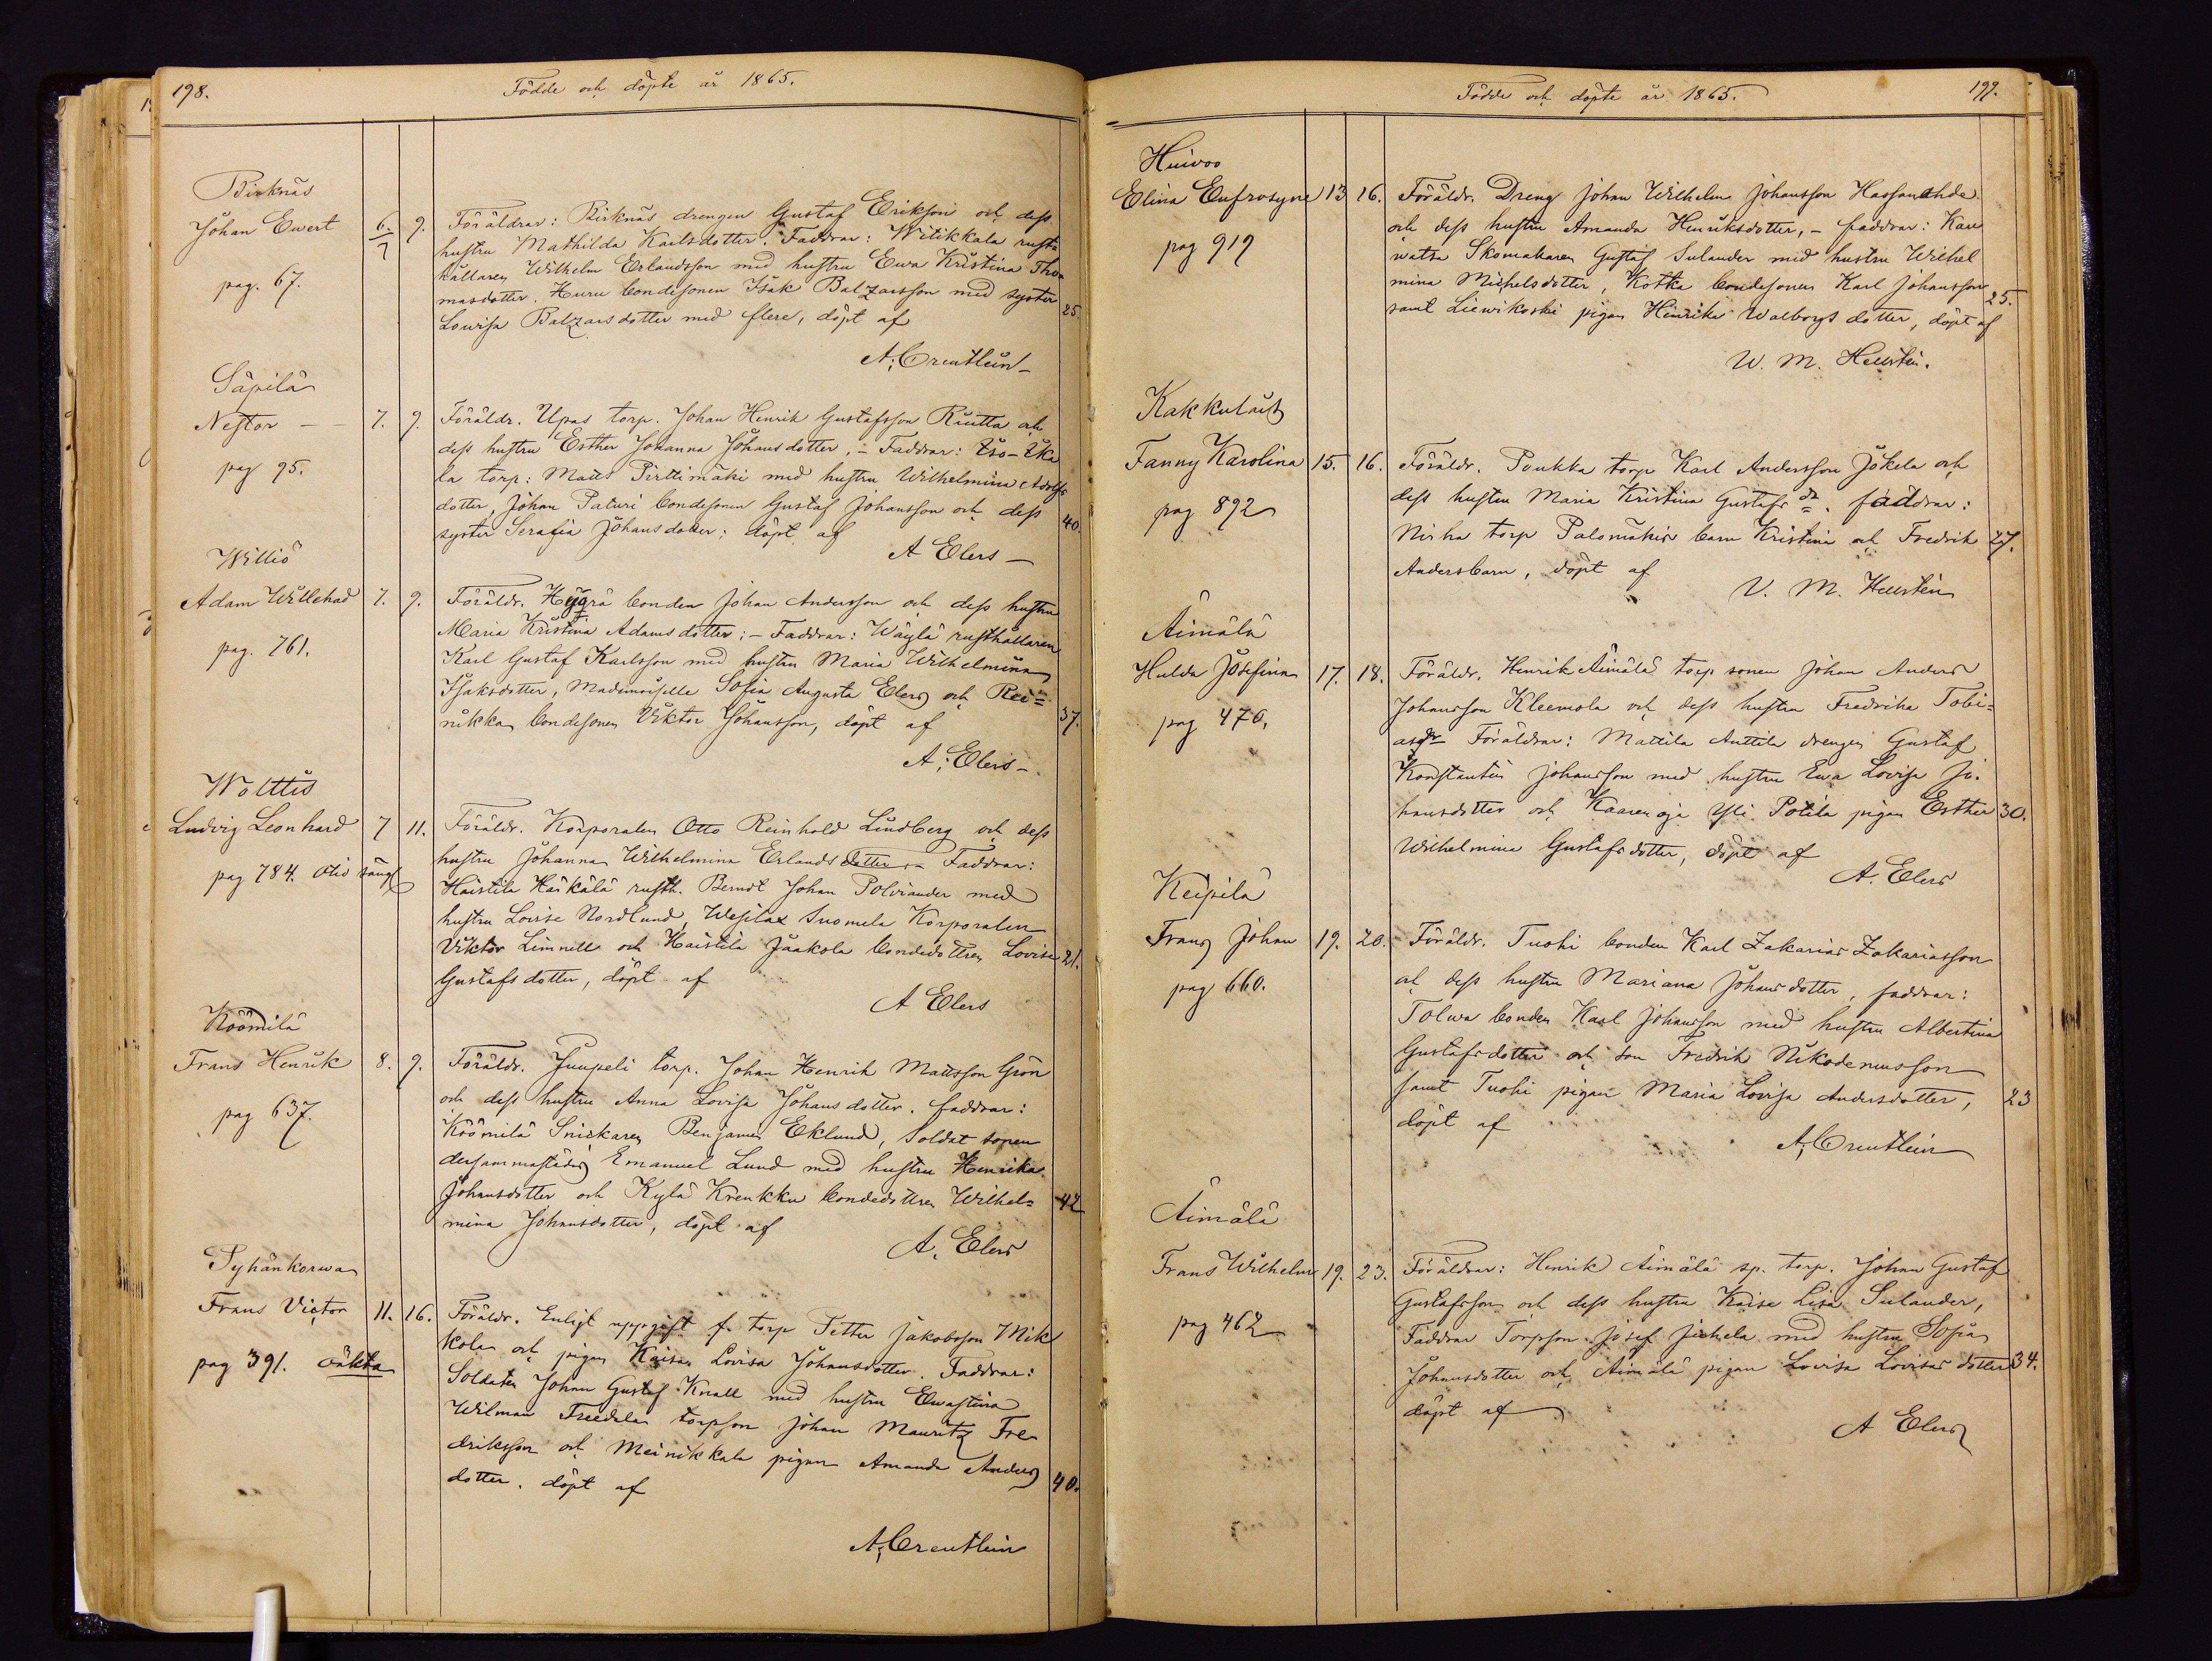 198.
Födde och döpte år 1865.
Birknäs
Johan Evert 6/7 9. Föräldrar: Birknäs drengen Gustaf Erikson och dess
hustru Mathilda Karlsdotter. Faddrar: Witikkala rust=
hållaren Wilhelm Erlandsson med hustru Ewa Kristina Tho=
pag. 67.
masdotter. Huru bondesonen Isak Balzarsson med syster
Lowisa Balzarsdotter med flere, döpt af 25.
A. Creutlein
Säpilä
Nestor — — 7. 9. Föräldr. Upas torp. Johan Henrik Gustafsson Riutta och
dess hustru Esther Johanna Johansdotter, – Faddrar: Iso-
pag 95.
la torp: Matts Pirttimäki med hustru Wilhelmina Adolfs
dotter, Johan Paturi bondesonen Gustaf Johansson och dess
syster Serafia Johansdotter; döpt af 40.
A Elers —
Willio
Adam Willehad 7. 9. Föräldr. bonden Johan Andersson och dess hustru
Maria Kristina Adamsdotter; – Faddrar: Wäylä rusthållaren
pag. 761.
Karl Gustaf Karlsson med hustru Maria Wilhelmina
Isaksdotter, Mademoiselle Sofia Augusta Elers och Rei=
nikka bondesonen Viktor Johansson, döpt af 37.
A. Elers –
Wolttis
Ludvig Leonhard 7 11. Föräldr. Korporalen Otto Reinhold Lindberg och dess
hustru Johanna Wilhelmina Erlandsdotter, – Faddrar:
pag 784.
Haistila Häikälä rusth. Berndt Johan Polviander med
hustru Lovise Nordlund, Suomela Korporalen
Viktor Limnell och Haistila Jaakola bondedottren Lovise 21.
Gustafsdotter, döpt af
A Elers
Köömilä
Frans Henrik 8. 9. Föräldr. Juupeli torp. Johan Henrik Mattsson Grön
och dess hustru Anna Lovisa Johansdotter. faddrar:
pag 637.
Köömilä Snickaren Benjamin Eklund, Soldat sonen
dersammastädes Emanuel Lund med hustru Henrika
Johansdotter och Kylä Krenkku bondedottren Wilhel= 42
mina Johansdotter, döpt af
A. Elers
Pyhänkorwa
Frans Victor 11. 16. Föräldr. Enligt uppgift f. torp Petter Jakobsson Mik
kola och pigan Kaisa Lovisa Johansdotter. Faddrar:
pag 391. oäkta
Soldaten Johan Gustaf Knall med hustru Ewastina
Wilman torpson Johan Mauritz Fre
driksson och Meinikkala pigan Amanda Anders 40.
dotter. döpt af
A. Creutlein
Födde och döpte år 1865.
199.
Huivoo
Elina Eufrosyne 13 16. Föräldr. Dreng Johan Wilhelm Johansson
och dess hustru Amanda Henriksdotter, – faddrar: Kau
pag 919
watsa Skomakaren Gustaf Sulander med hustru Wilhel
mina Michelsdotter, Kotka bondesonen Karl Johansson 25.
samt Liewikoski pigan Henrika Walborgs dotter, döpt af
W. M. Hellstén.
Kakkulais
Fanny Karolina 15. 16. Föräldr. Ponkka torp Karl Andersson Jokela och
dess hustru Maria Kristina Gustafs dr. faddrar:
pag 892
Nirha torp Palomäkis barn Kristina och Fredrik 27.
Andersbarn, döpt af
V. M. Hellstén
Äimälä
Hulda Josefina 17. 18. Föräldr. Henrik Äimälä torp sonen Johan Anders
Johansson Kleemola och dess hustru Fredrika Tobi=
pag 470.
asdr Föräldrar: Mattila Anttila drengen Gustaf
Konstantin Johansson med hustru Ewa Lovisa Jo=
hansdotter och Kaarenoja Yli Potila pigan Esther 30.
Wilhelmina Gustafsdotter, döpt af
A. Elers
Keipilä
Frans Johan 19. 20. Föräldr. Tuohi bonden Karl Zakarias Zakariasson
och dess hustru Mariana Johansdotter, faddrar:
pag 660.
Tolwa bonden Karl Johansson med hustru Albertina
Gustafsdotter och son Fredrik Nikodemusson
samt Tuohi pigan Maria Lovisa Andersdotter, 23
döpt af
A. Creutlein
Äimälä
Frans Wilhelm 19. 23. Föräldrar: Henrik Äimälä sp. torp. Johan Gustaf
Gustafsson och dess hustru Kaisa Lisa Sulander,
pag 462
Faddrar Torpson Josef med hustru Sofia
Johansdotter och Äimälä pigan Lovisa Lovisas dotter 34.
döpt af
A Elers